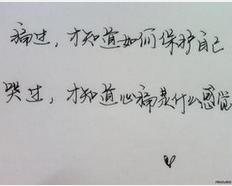 痛过，才知道如何保护自己
哭过，才知道心痛是什么感觉